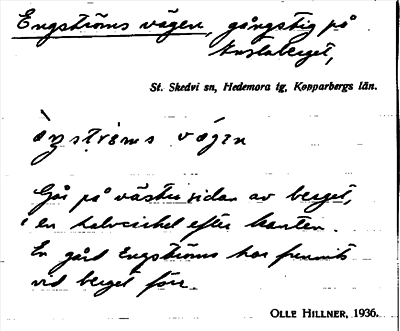 Engströms vägen, gångstig på
berget,
St. Skedvi sn, Hedemora tg, Kopparbergs län.
ängströms vägen
Går på västra sidan av berget,
i en halvcirkel efter kanten.
En gård Engströms har funnits
vid berget förr.
OLLE HILLNER, 1936.